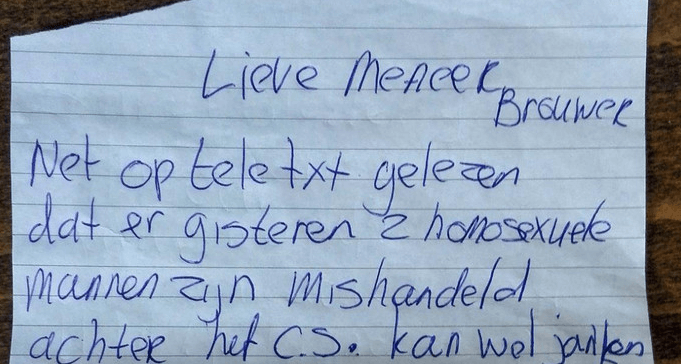 Lieve Meneer
Brouwer
Net op teletxt gelezen
dat er gisteren 2 homosexuele
mannen zijn mishandeld
achter het C.S. kan wel janken